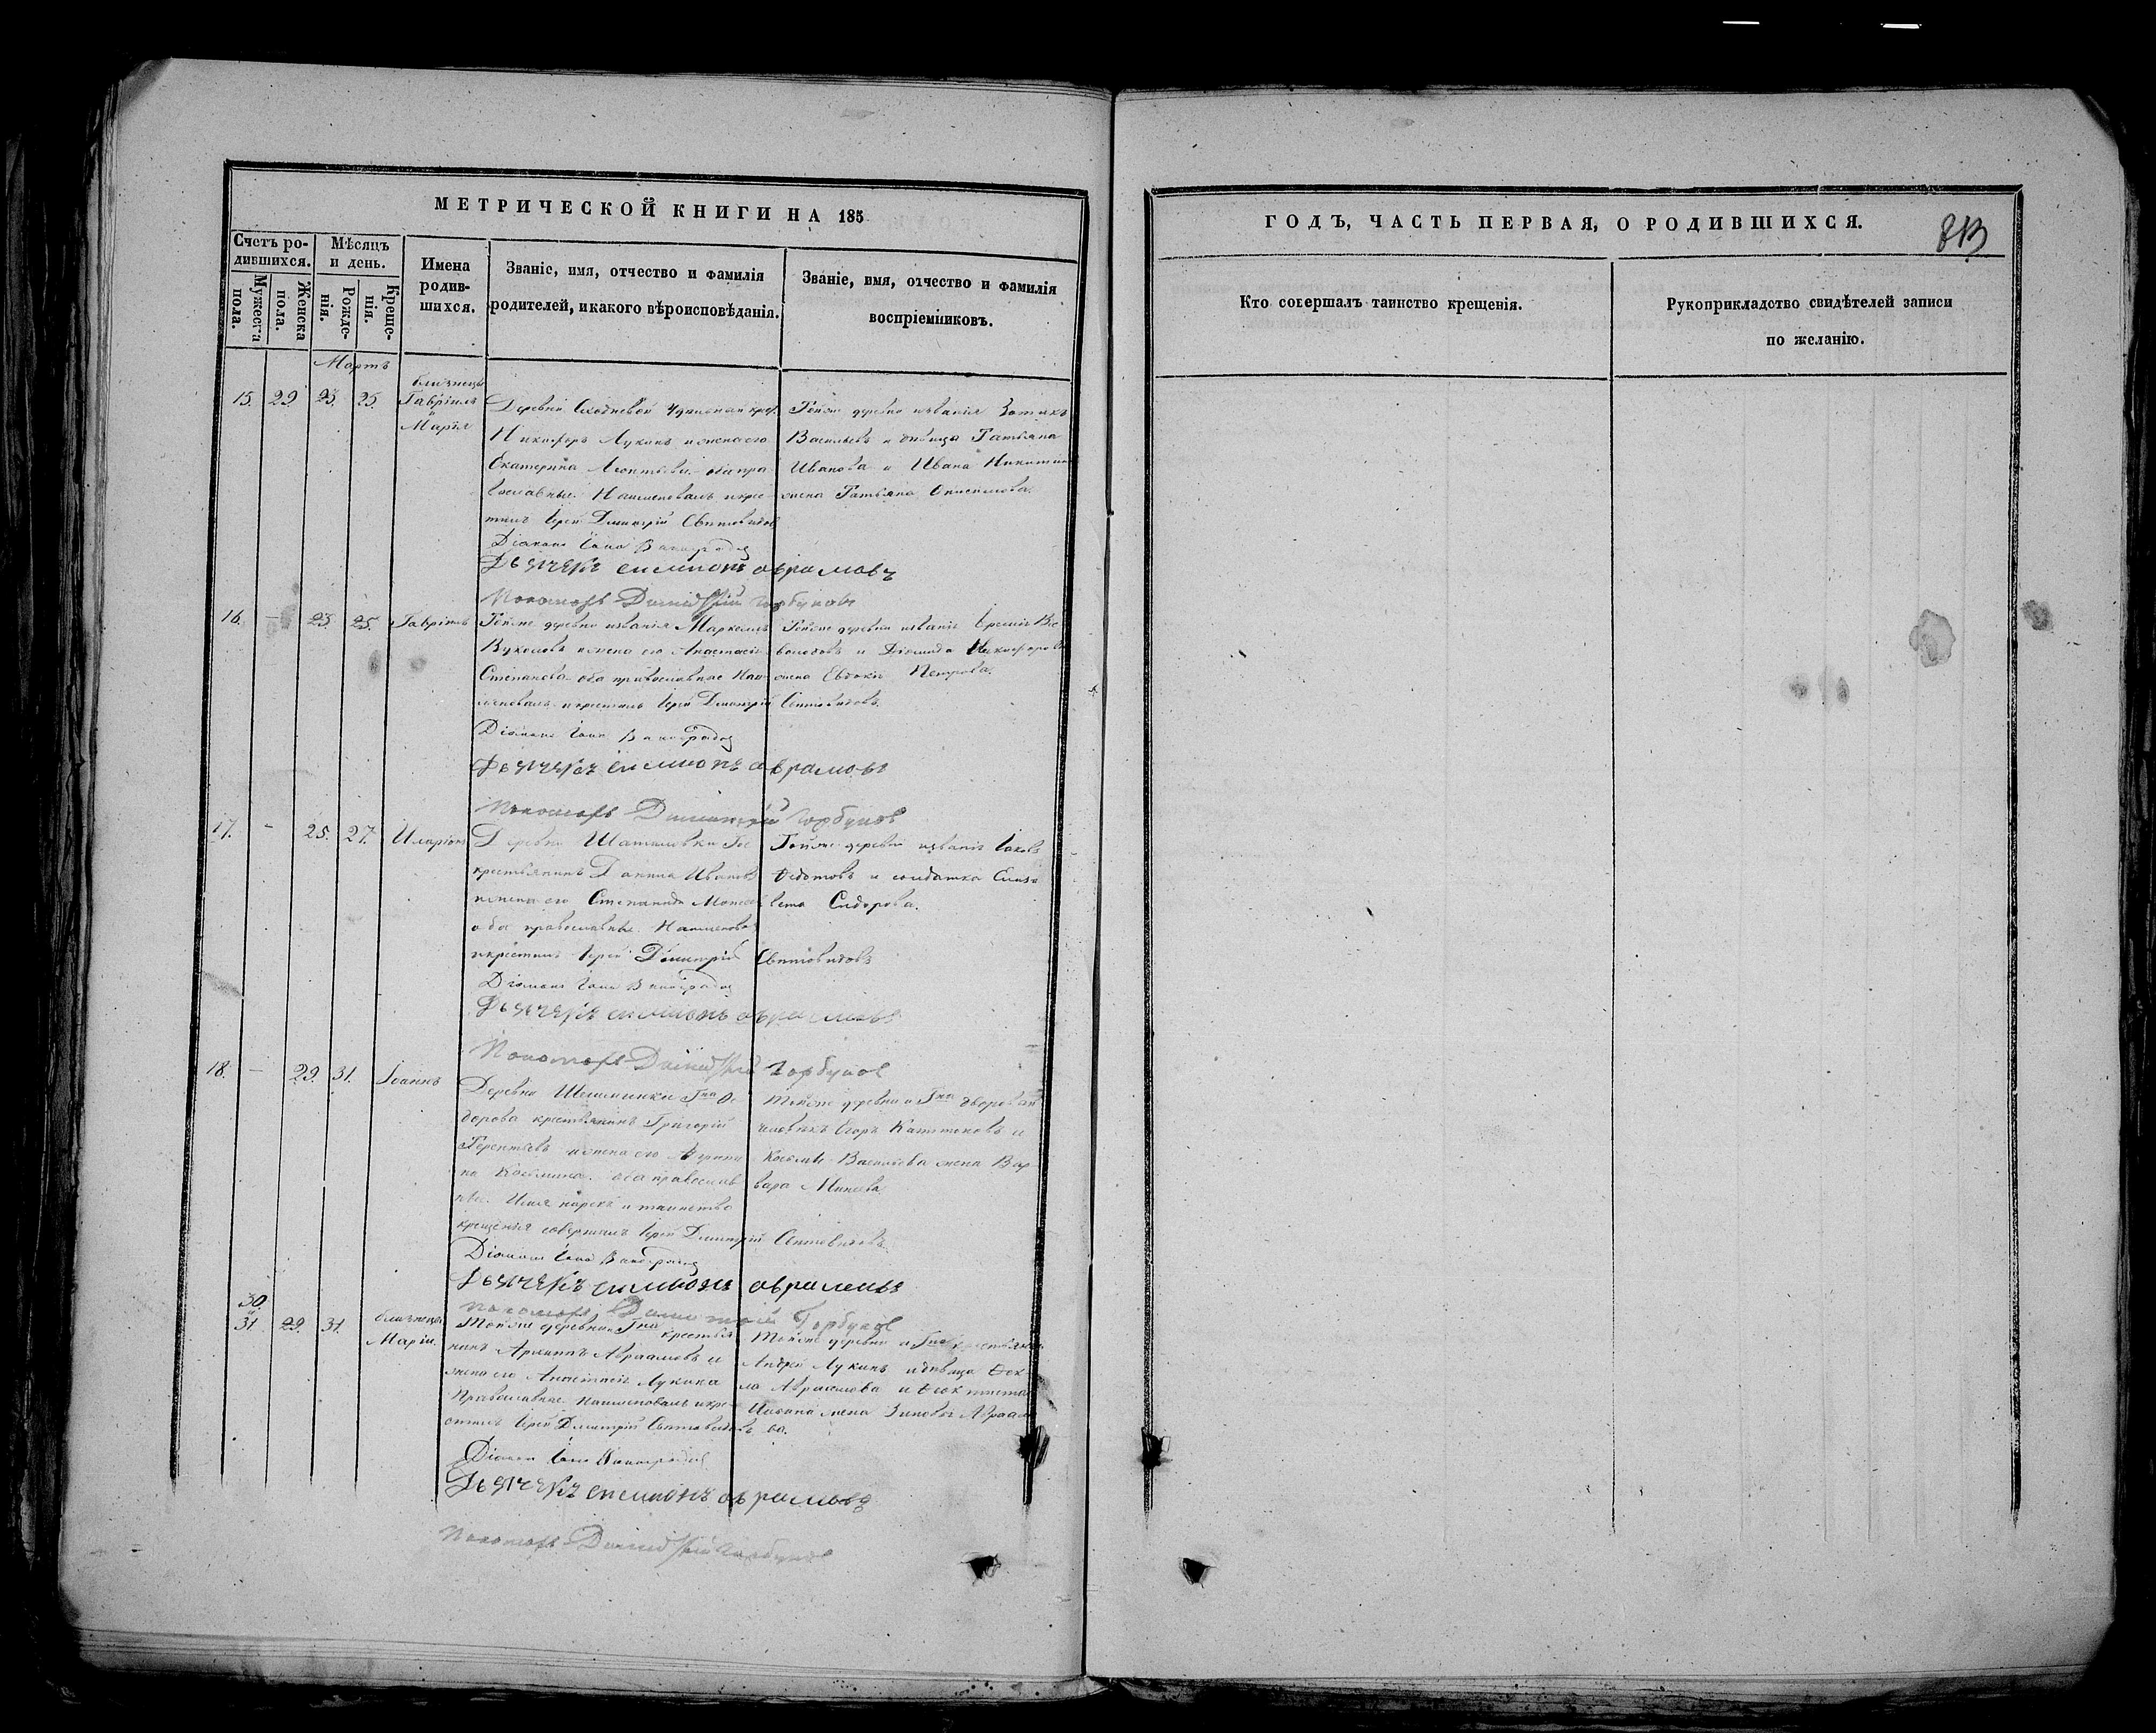 МЕТРИЧЕСКОЙ КНИГИ НА 185
Счетъ родившихся.
Мужеска пола.
Женска пола.
Мѣсяцъ и день.
Рожденія.
Крещенія.
Имена родившихся.
Званіе, имя, отчество и фамилія
родителей, и какого вѣроисповѣданія.
Званіе, имя, отчество и фамилія
воспріемниковъ.
Мартъ
близнецы
15. 29. 23. 25. Гавріилъ
и
Марія
Деревни
Никифоръ Лукинъ и жена его
Екатерина Леонтьева оба пра
вославные. Наименовалъ и крес
тилъ Іерей Димитрій Свѣтовидовъ
Діаконъ Іоаннъ Виноградовъ
Дьячекъ симионъ аврамовъ
Пономарь Димитрій Горбуновъ
Тойже деревни и званія
Васильевъ и дѣвица Татьяна
Иванова и Ивана Никитина
жена Татьяна
16. - 23. 25. Гавріилъ
Тойже деревни и званія Маркеллъ
Вуколовъ и жена его Анастасія
Степанова оба православные Наи
меновалъ и крестилъ Іерей Димитрій Свѣтовидовъ.
Діаконъ Іоаннъ Виноградовъ
Дьячекъ симионъ аврамовъ
Пономарь Димитрій Горбуновъ
Тойже деревни и званія
и Діомида Никифорова
жена Евдокія Петрова.
17. - 25. 27. Иларіонъ
Деревни
крестьянинъ Иванова
и жена его Степанида
оба православные Наименовалъ
и крестилъ Іерей Димитрій Свѣтовидовъ
Діаконъ Іоаннъ Виноградовъ
Дьячекъ симионъ аврамовъ
Пономарь Димитрій Горбуновъ
Тойже деревни и званія Іаковъ
Ѳедотовъ и солдатка Елиза
вета Сидорова.
18. - 29. 31. Іоаннъ
Деревни Г^на Ѳе
дорова крестьянинъ Григорій
Терентьевъ и жена его Агрипи
на Косьмина. оба православ
ные. Имя нарекъ и таинство
крещенія совершилъ Іерей Димитрій Свѣтовидовъ.
Діаконъ Іоаннъ Виноградовъ
Дьячекъ симионъ аврамовъ
Пономарь Димитрій Горбуновъ
Тойже деревни и Г^на дворовый
человѣкъ Егоръ и
Косьмы Васильева жена Вар
вара
30.
и
31. 29. 31. близнецы
Маріи.
Тойже деревни и Г^на крестья
нинъ Архиппъ Авраамовъ и
жена его Анастасія Лукина
Православные. Наименовалъ и кре
стилъ Іерей Димитрій Свѣтовидовъ
Діаконъ Іоаннъ Виноградовъ
Дьячекъ симионъ аврамовъ
Пономарь Димитрій Горбуновъ
Тойже деревни и Г^на крестьянинъ
Андрей Лукинъ и дѣвица Ѳек
ла Авраамова и Ѳеоктиста
жена Авраамо
ва.
ГОДЪ, ЧАСТЬ ПЕРВАЯ, О РОДИВШИХСЯ.
Кто совершалъ таинство крещенія.
Рукоприкладство свидѣтелей записи
по желанію.